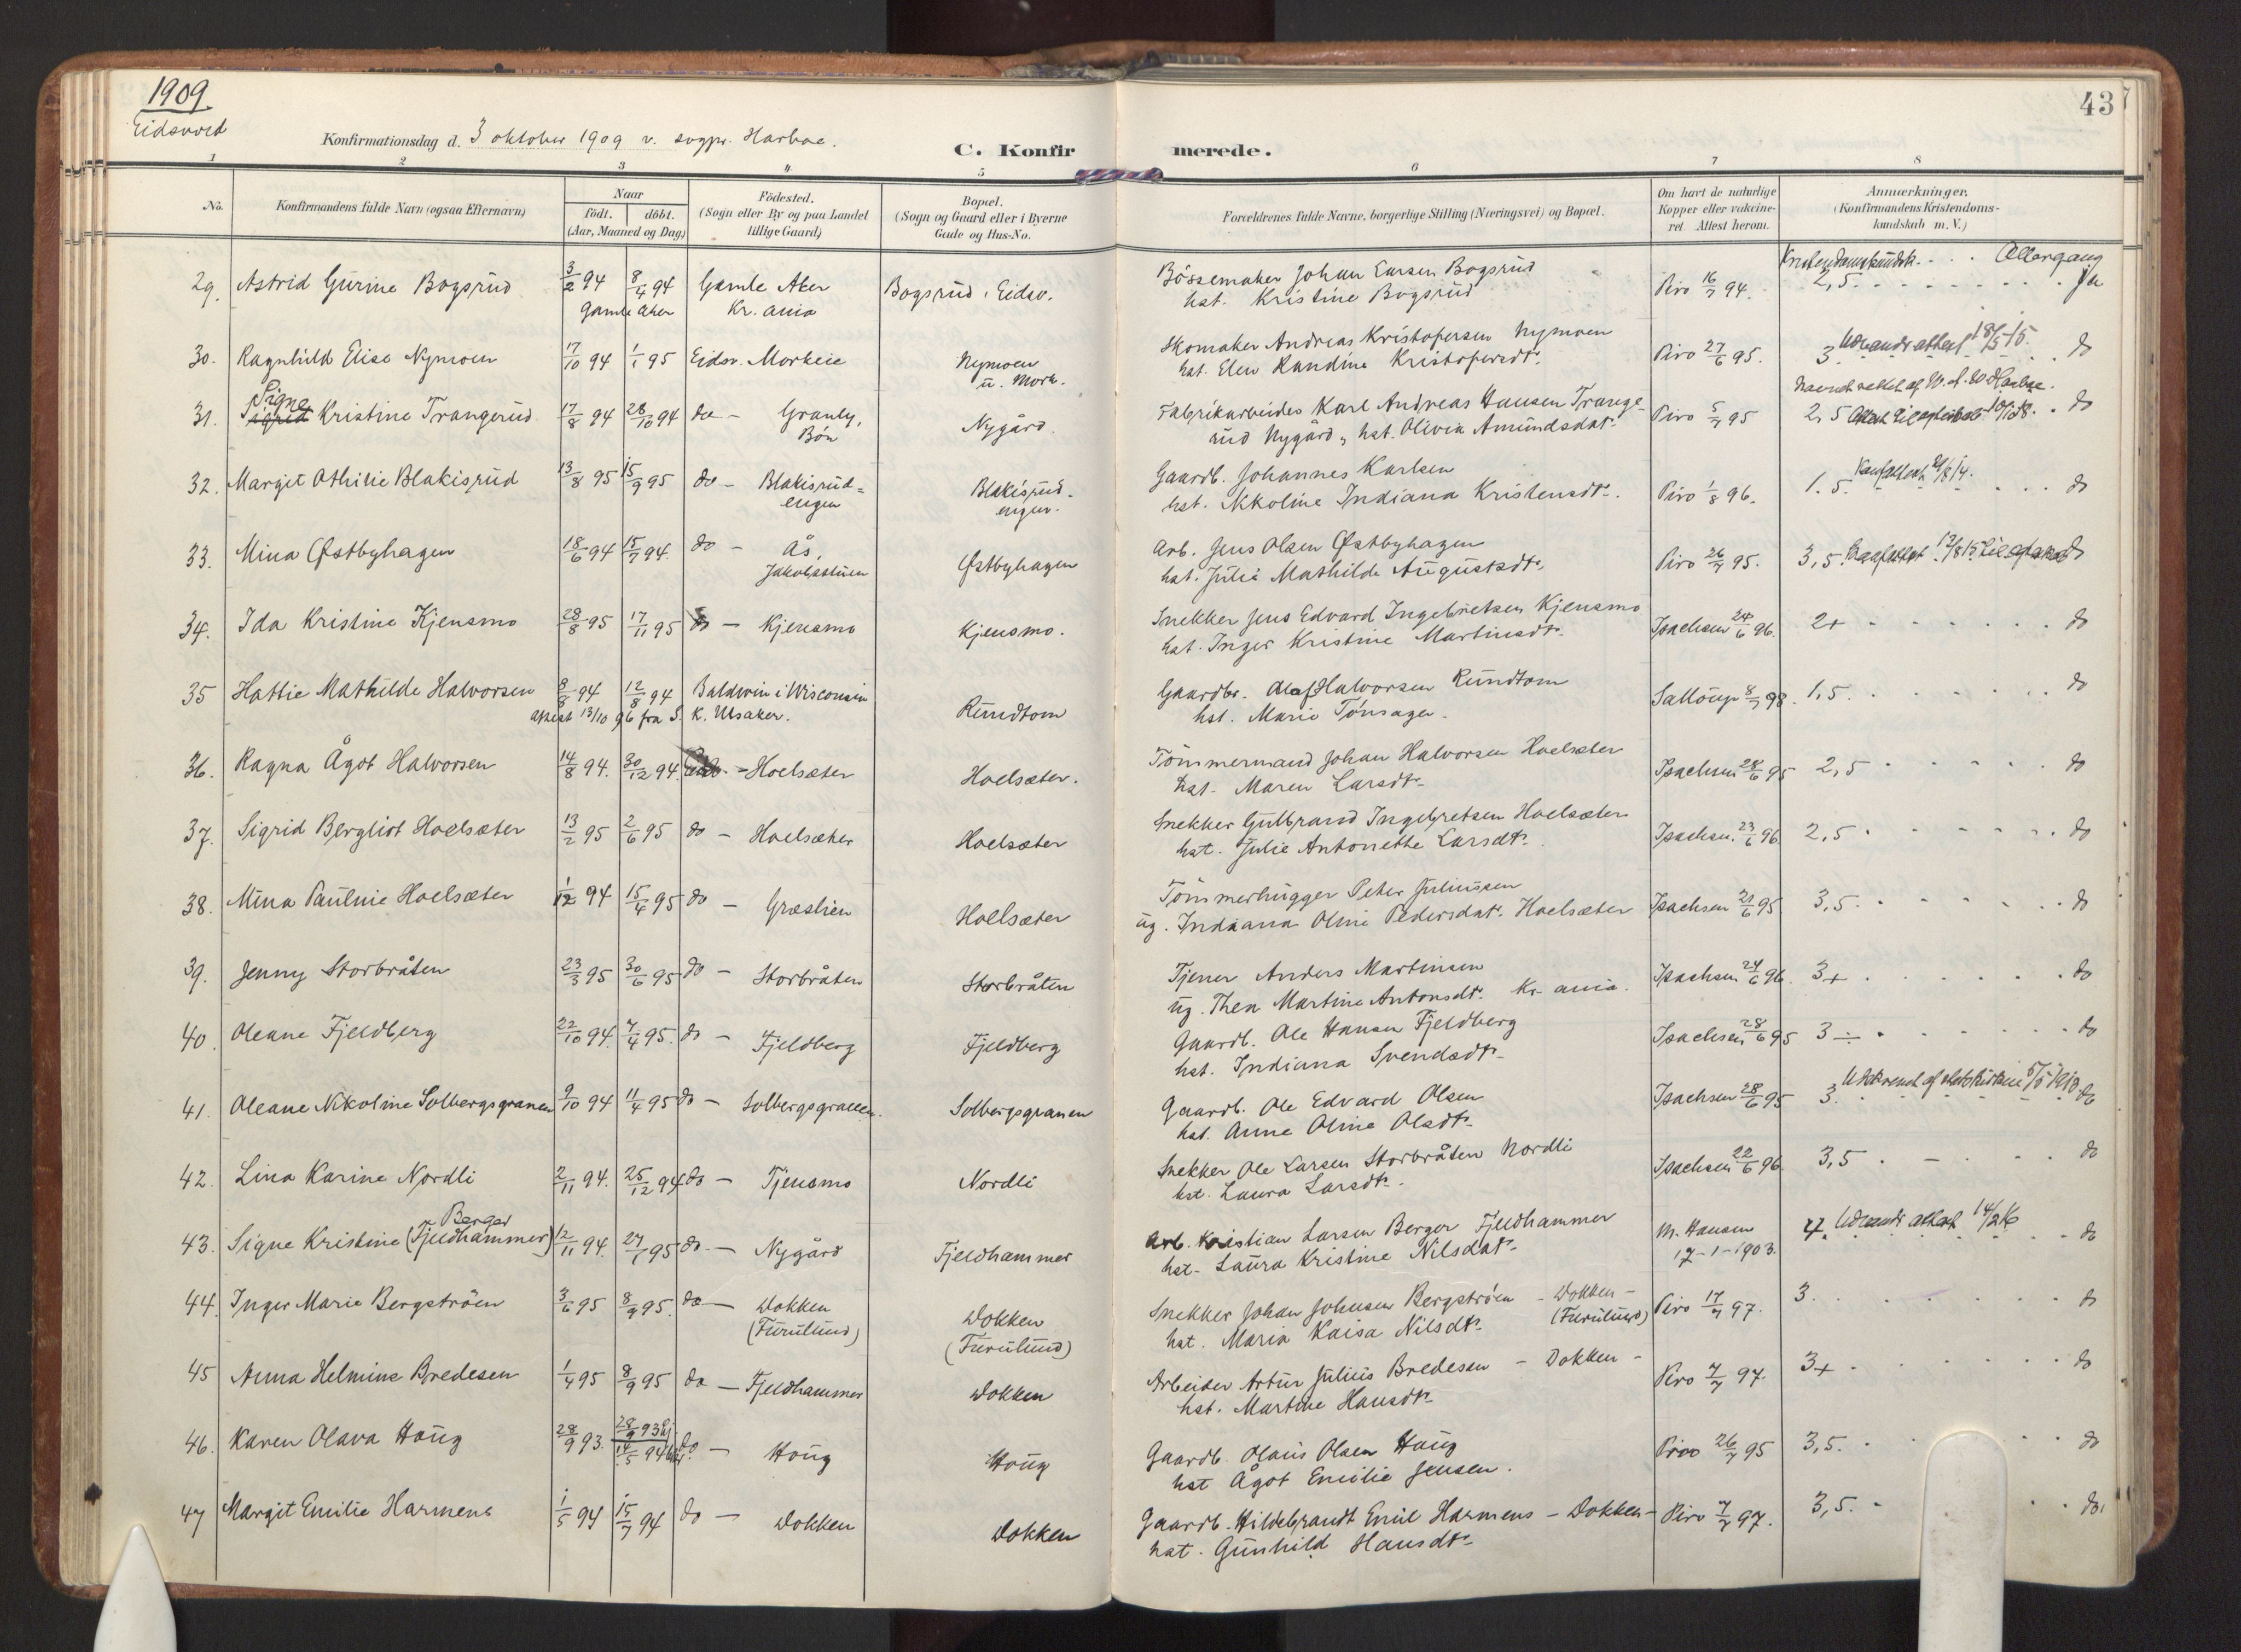 1909
Eidsvold
43
Konfirmationsdag d. 3 oktober 1909 v. sogpr. Harboe.
C. Konfirmerede.
1 2 3 4 5 6 7 8
No.
Konfirmandens fulde Navn (ogsaa Efternavn)
Naar
födt. döbt.
(Aar, Maaned og Dag.)
Födested.
(Sogn eller By og paa Landet
tillige Gaard)
Bopæl.
(Sogn og Gaard eller i Byerne
Gade og Hus-No.
Forældrenes fulde Navne, borgerlige Stilling (Næringsvei) og Bopæl.
Om havt de naturlige
Kopper eller vakcine-
ret. Attest herom.
Anmærkninger.
(Konfirmandens Kristendoms-
kundskab m. V.)
Kristendomskundsk. . . . Altergang
29. Astrid Gurine Bogsrud 3/2 94 8/4 94 Gamle Aker Bogsrud, Eidsv. Bössemaker Johan Larsen Bogsrud Piro 16/7 94. 2,5 Ja
Gamle Aker Kr.ania hst. Kristine Bogsrud
30. Ragnhild Elise Nymoen 17/10 94 1/1 95 Eidsv. Morkeie Nymoen Skomaker Andreas Kristofersen Nymoen Piro 27/6 95. 3 Udvandr.attest 18/5 15. do
u. Mork. hst. Elen Randine Kristofersdtr.
Signe Navnet rettet af
31. Sigrid Kristine Trangerud 17/8 94 28/10 94 do - Granly, Nygård Fabrikarbeider Karl Andreas Hansen Trange- Piro 5/7 95 2,5 do
Bön rud Nygård, hst. Olivia Amundsdatr.
32. Margit Othilie Blakisrud 13/8 95 15/9 95 do - Blakisrud= Blakisrud- Gaardb. Johannes Karlsen Piro 1/8 96. 1.5. do
engen engen. hst. Nikoline Indiana Kristensdtr.
33. Mina Østbyhagen 18/6 94 15/7 94. do - Ås, Østbyhagen Arb. Jens Olsen Østbyhagen Piro 26/7 95. 3,5. do
Jakobsstuen hst. Julie Mathilde Augustsdtr.
34. Ida Kristine Kjensmo 28/8 95 17/11 95 do - Kjensmo Kjensmo. Snekker Jens Edvard Ingebretsen Kjensmo Isachsen 24/6 96. 2+ do
hst. Inger Kristine Martinsdtr.
35 Hattie Mathilde Halvorsen 8/8 94 12/8 94 Baldwin i Wisconsin Rundtom Gaardbr. Olaf Halvorsen Rundtom 8/7 98. 1,5. do
attest 13/10 96 fra S. K. Ulsaker. hst. Marie Tönsager.
36. Ragna Ågot Halvorsen 14/8 94. 30/12 94. - Hoelsæter Hoelsæter. Tömmermand Johan Halvorsen Hoelsæter Isachsen 28/6 95 2,5 do
hst. Maren Larsdtr.
37. Sigrid Bergliot Hoelsæter 13/2 95 2/6 95 do - Hoelsæter Hoelsæter Snekker Gulbrand Ingebretsen Hoelsæter Isachsen. 23/6 96. 2,5 do
hst. Julie Antonette Larsdtr.
38. Mina Pauline Hoelsæter 1/12 94 15/4 95 do - Græslien Hoelsæter Tömmerhugger Peter Juliussen Isachsen 21/6 95 3,5. do
ug. Indiana Oline Pedersdatr. Hoelsæter
39. Jenny Storbråten 23/3 95 30/6 95 do - Storbråten Storbråten Tjener Anders Martinsen Isachsen 24/6 96. 3+ do
ug. Thea Martine Antonsdtr. Kr.ania.
40. Oleane Fjeldberg 22/10 94. 7/4 95. do - Fjeldberg Fjeldberg Gaardb. Ole Hansen Fjeldberg Isachsen 28/6 95 3 ÷ do
hst. Indiana Svendsdtr.
41. Oleane Nikoline Solbergsgranen 9/10 94 11/4 95 do - Solbergsgranen. Solbergsgranen Gaardb. Ole Edvard Olsen Isachsen 28/6 95 3. do
hst. Anne Oline Olsdtr.
42. Lina Karine Nordli 2/11 94. 25/12 94 do - Tjensmo Nordli Snekker Ole Larsen Storbråten Nordli Isachsen 22/6 96. 3,5 do
hst. Laura Larsdtr.
Berger
43. Signe Kristine (Fjeldhammer) 12/11 94. 27/1 95 do - Nygård Fjeldhammer Arb. Kristian Larsen Berger Fjeldhammer M. Hansen 4. Udvandr. attest 14/2 16 do
hst. Laura Kristine Nilsdatr. 17-1-1903.
44. Inger Marie Bergström 3/6 95 8/9 95. do - Dokken Dokken Snekker Johan Johnsen Bergström - Dokken - Piro 17/7 97. 3. do
(Furulund) (Furulund) hst. Maria Kaisa Nilsdtr. (Furulund)
45 Anna Helmine Bredesen 1/4 95 8/9 95 do - Fjeldhammer Dokken Arbeider Artur Julius Bredesen - Dokken - Piro 7/7 97. 3+ do
hst. Martine Hansdtr.
46. Karen Olava Haug 28/9 93. 28/9 93 hj. 14/5 94 do - Haug Haug Gaardb. Olaus Olsen Haug Piro 26/7 95 3,5. do
hst Ågot Emilie Jensen.
47 Margit Emilie Harmens 1/5 94 15/7 94 do - Dokken Dokken Gaardb. Hildebrandt Emil Harmens - Dokken - Piro 7/7 97. 3,5. do.
hst. Gunhild Hansdtr.